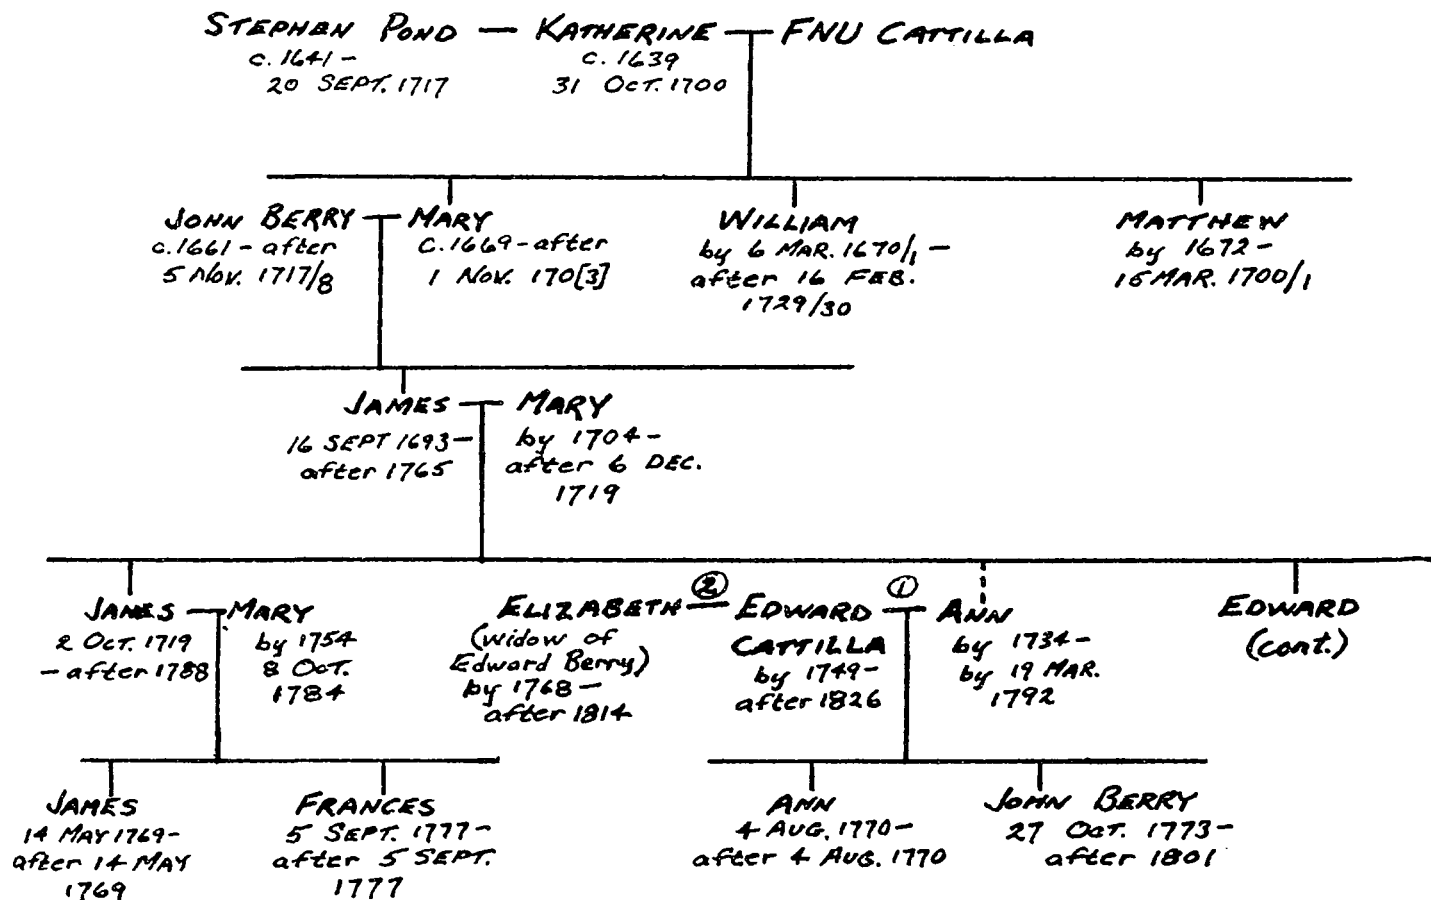 STEPHEN POND — KATHERINE — FNU CATTILLA
c. 1641 –
20 SEPT. 1717
c. 1639
31 OCT. 1700
JOHN BERRY — MARY
c. 1661 – after
5 NOV. 1717/8
c. 1669 – after
1 NOV. 170[3]
WILLIAM
by 6 MAR. 1670/1 –
after 16 FEB.
1729/30
MATTHEW
by 1672 –
16 MAR. 1700/1
JAMES — MARY
16 SEPT 1693 –
after 1765
by 1704 –
after 6 DEC.
1719
JAMES — MARY
2 OCT. 1719
– after 1788
by 1754
8 OCT.
1784
ELIZABETH ② EDWARD ① ANN
(widow of
Edward Berry)
by 1768 –
after 1814
CATTILLA
by 1749 –
after 1826
by 1734 –
by 19 MAR.
1792
EDWARD
(cont.)
JAMES
14 MAY 1769 –
after 14 MAY
1769
FRANCES
5 SEPT. 1777 –
after 5 SEPT.
1777
ANN
4 AUG. 1770 –
after 4 AUG. 1770
JOHN BERRY
27 OCT. 1773 –
after 1801